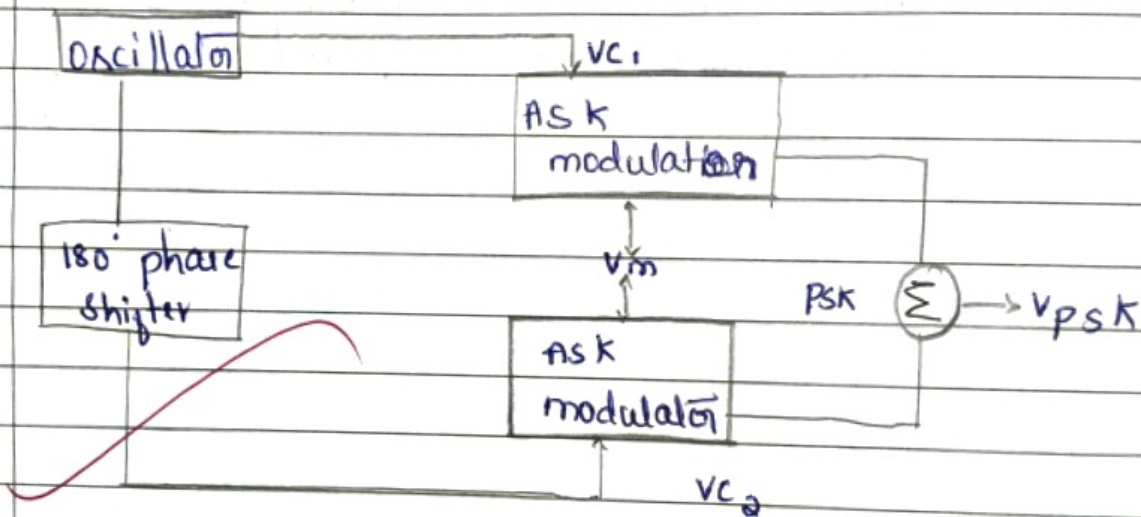 Oscillator
VC1
ASK
modulation
180° phase
shifter
Vm
PSK
Σ
VPSK
ASK
modulator
VC2